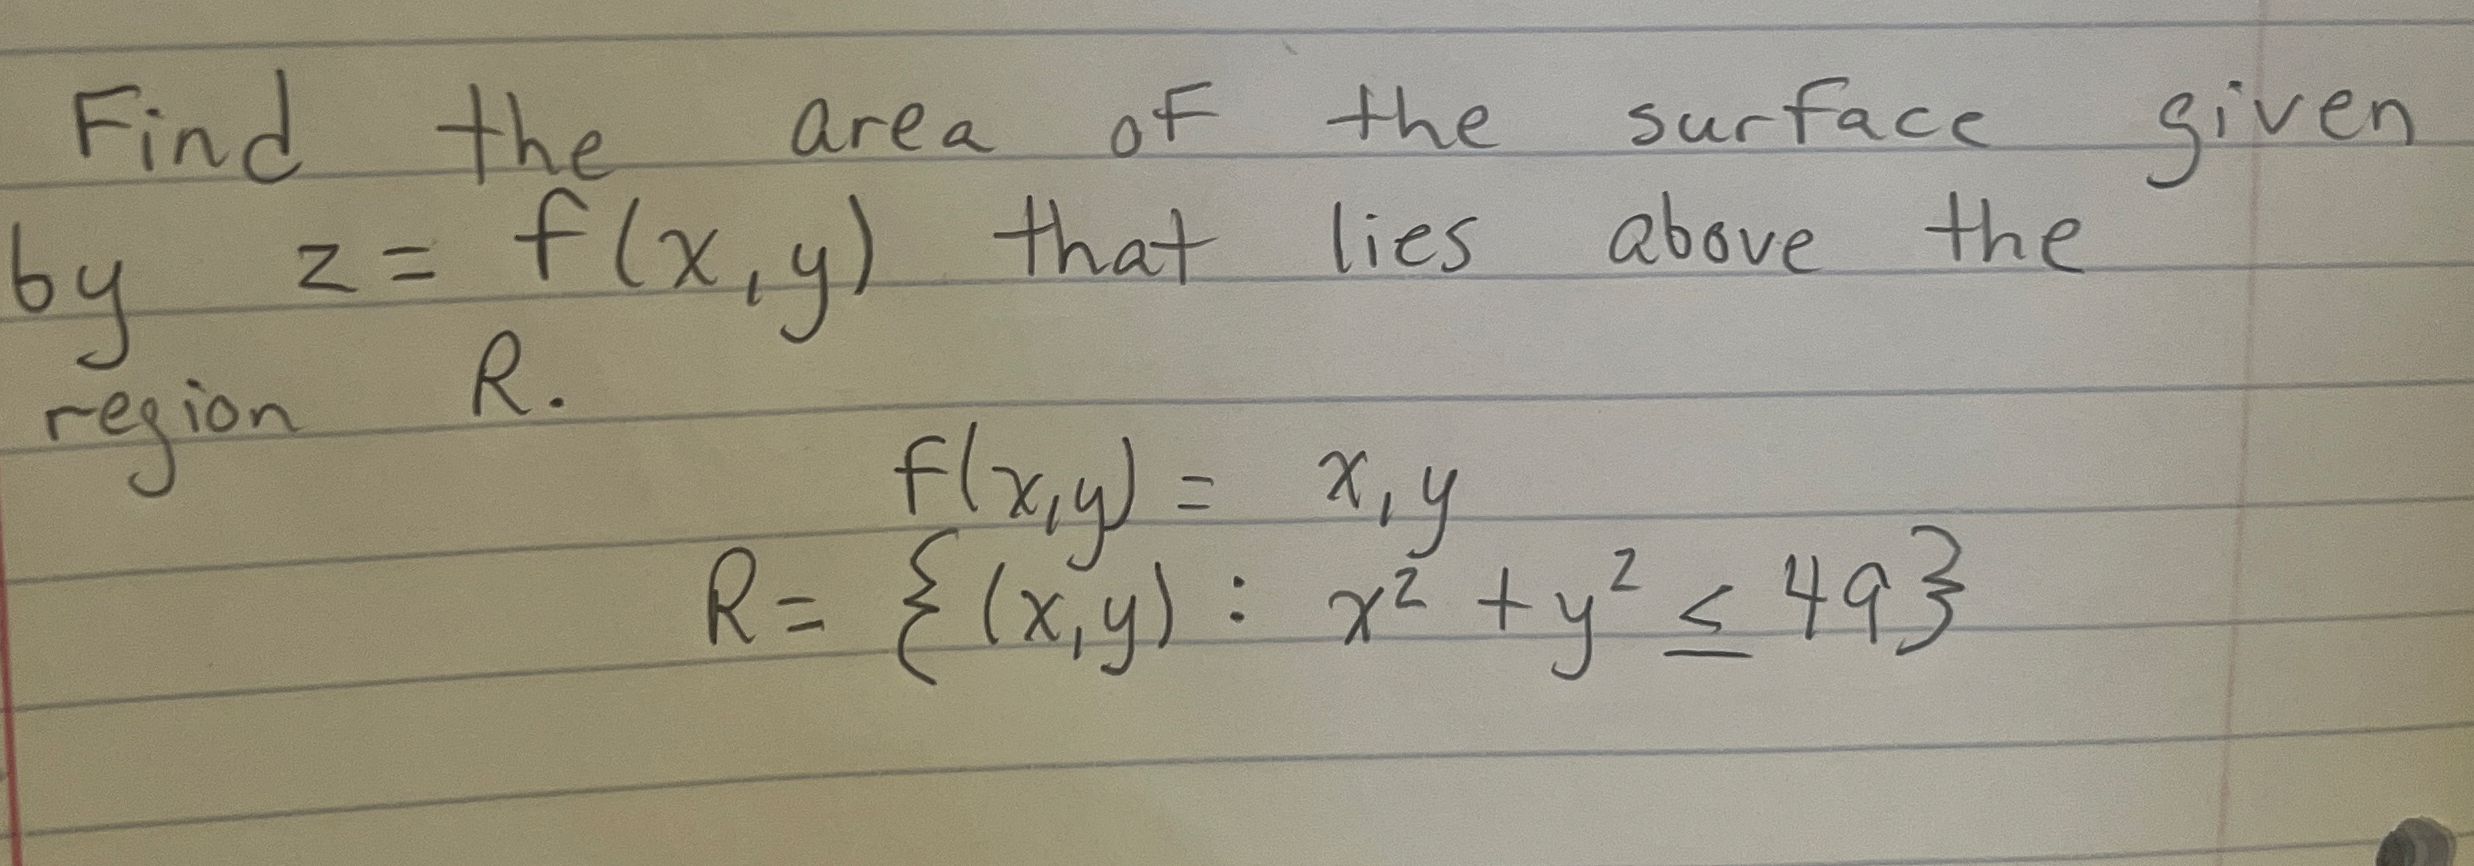 Find the area of the surface given
by z = f(x,y) that lies above the
region R.
f(x,y) = x,y
R = {(x,y) : x² + y² ≤ 49}